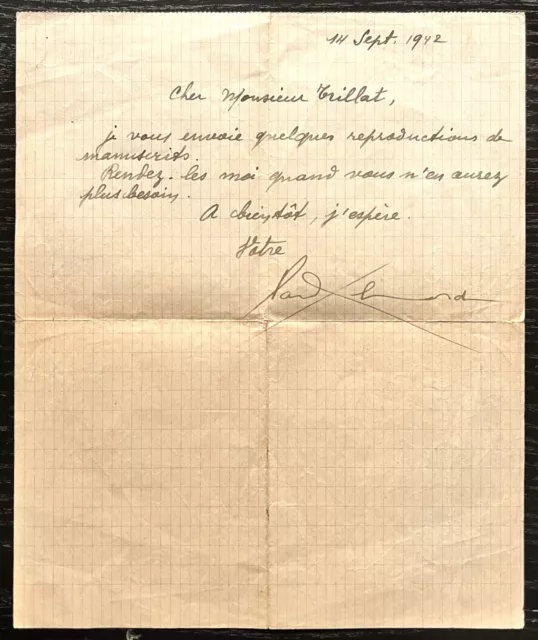 14 Sept. 1942
Cher Monsieur Trillat,
je vous envoie quelques reproductions de
manuscrits.
Rendez-les moi quand vous n'en aurez
plus besoin.
A bientôt, j'espère.
Votre
Paul Eluard